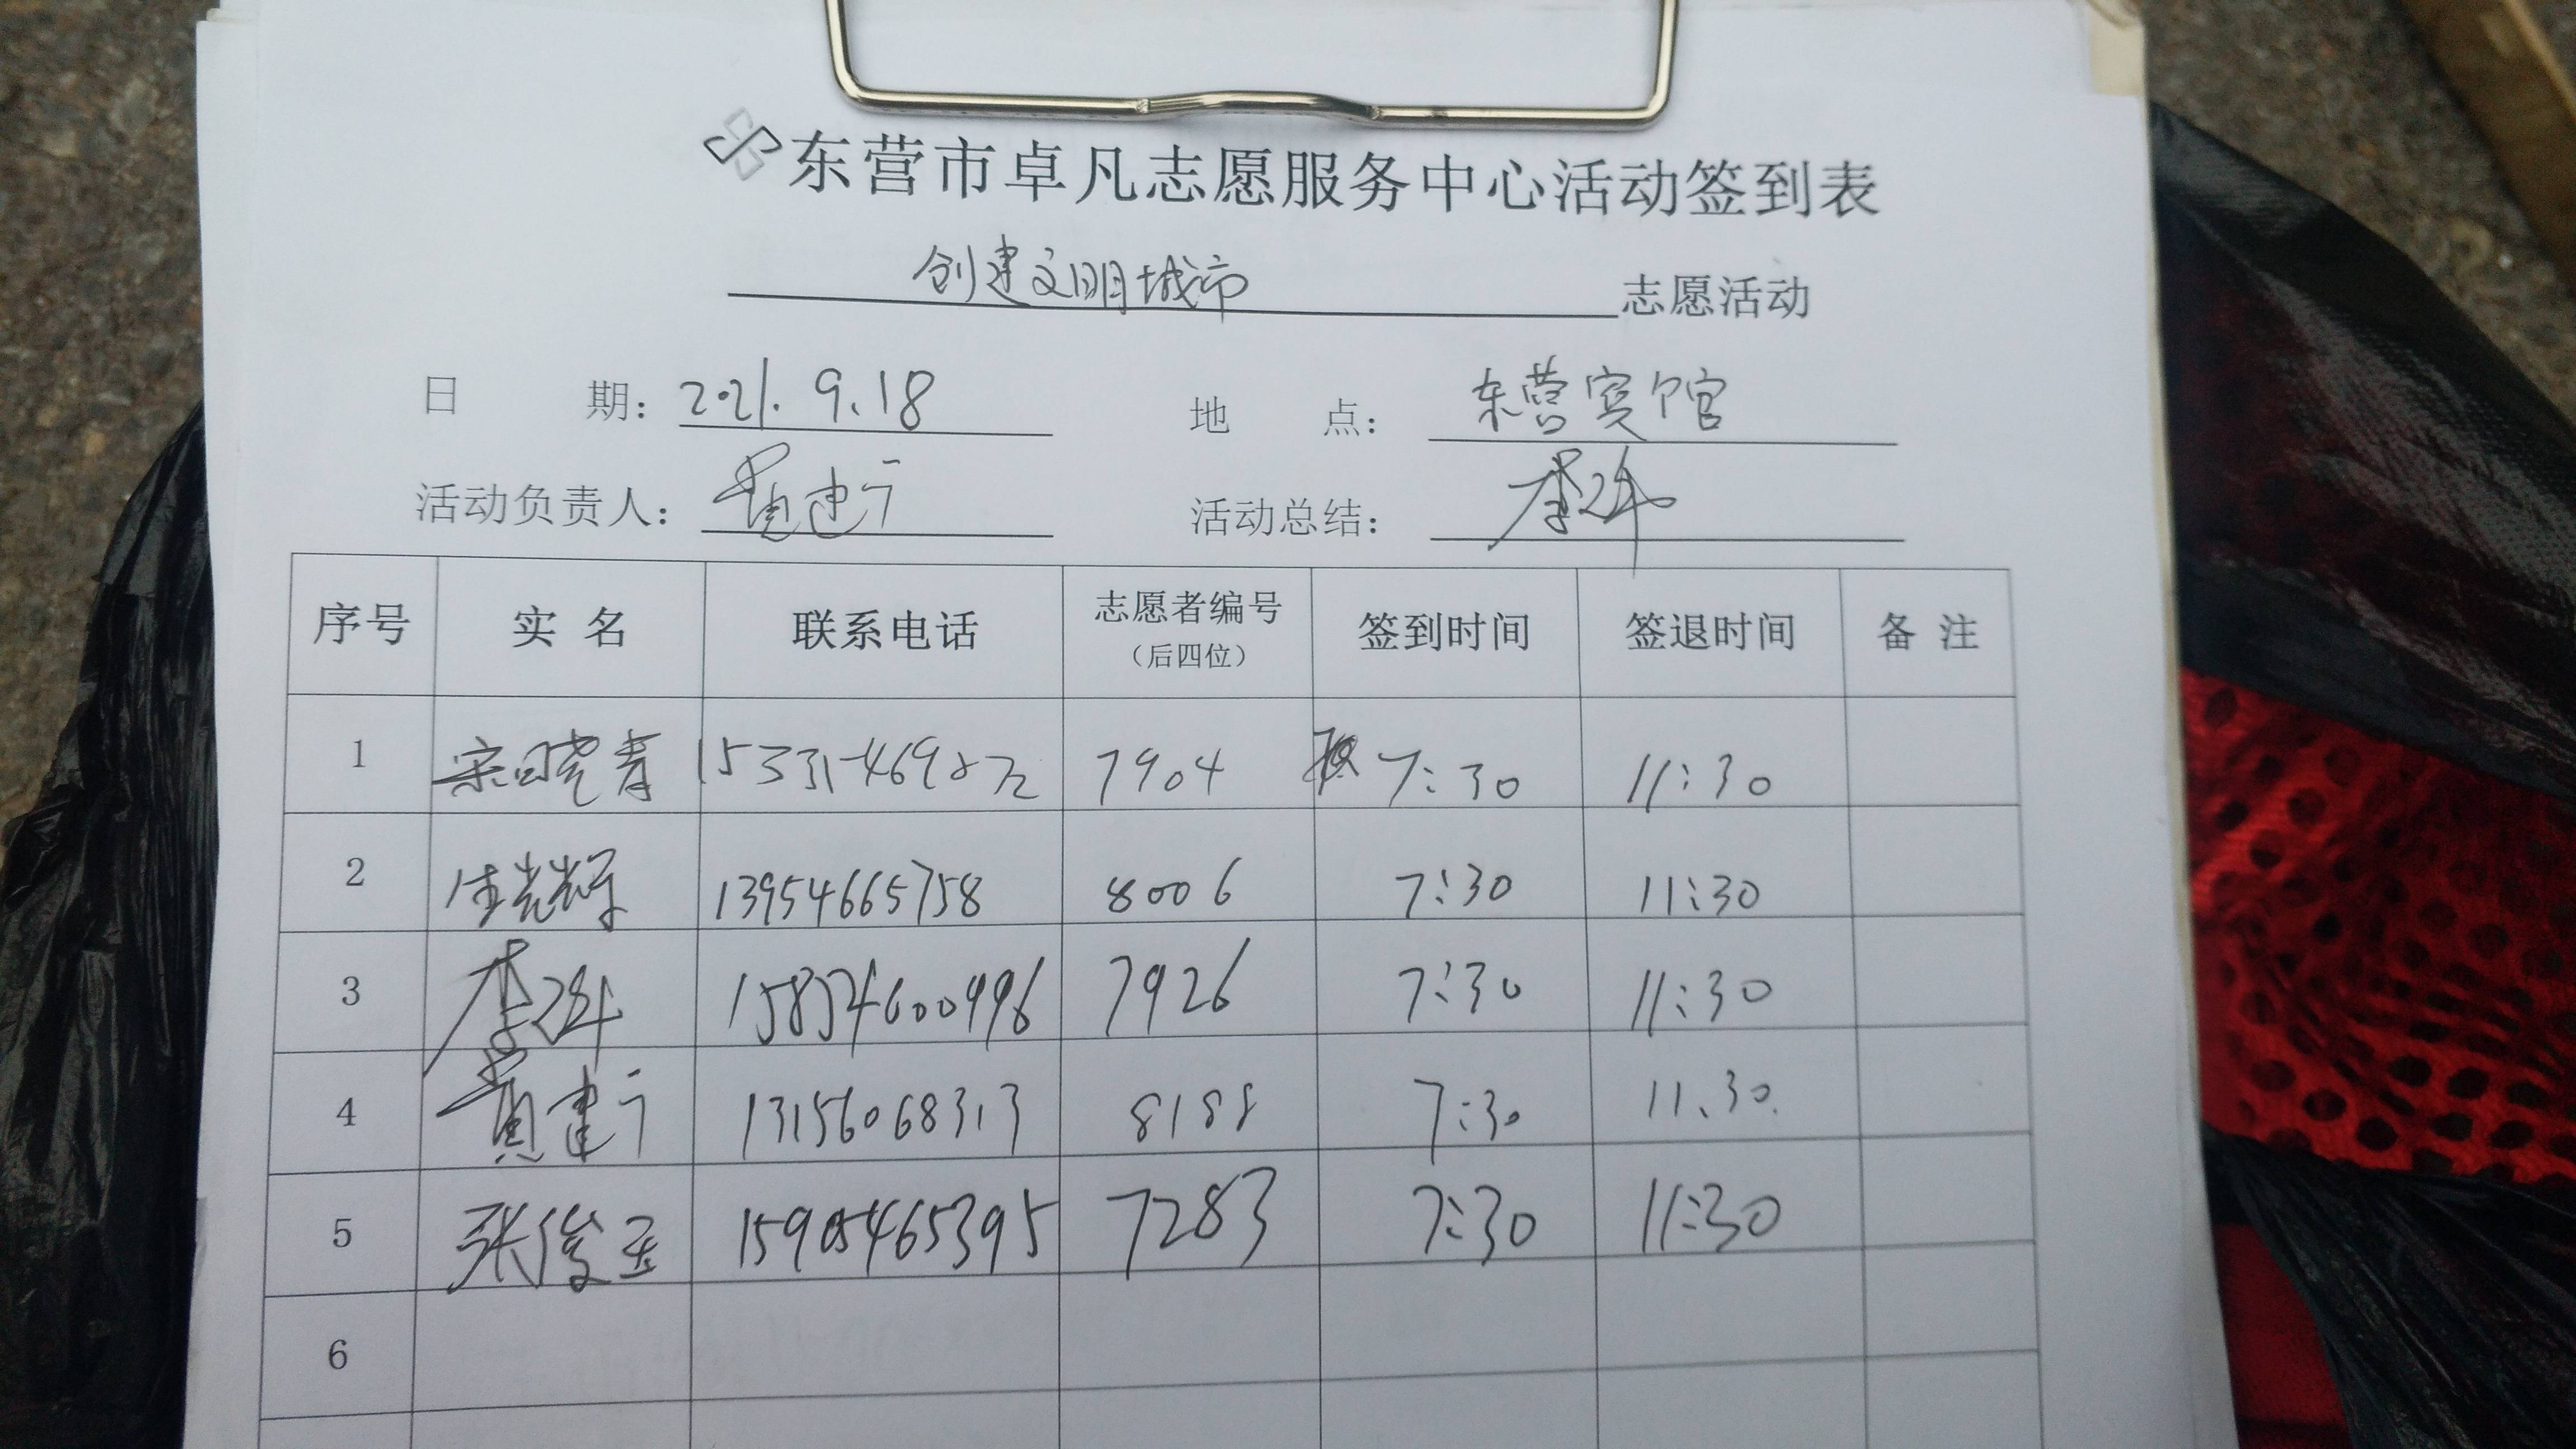 东营市卓凡志愿服务中心活动签到表
创建文明城市 志愿活动
日 期: 2021.9.18 地 点: 东营宾馆
活动负责人: 建宁 活动总结: 李
序号 实 名 联系电话 志愿者编号 (后四位) 签到时间 签退时间 备 注
1 宋晓青 7904 7:30 11:30
2 光辉 13954665758 8006 7:30 11:30
3 李 7926 7:30 11:30
4 建 13156068313 8188 7:30 11.30.
5 张俊玉 15905465395 7283 7:30 11:30
6